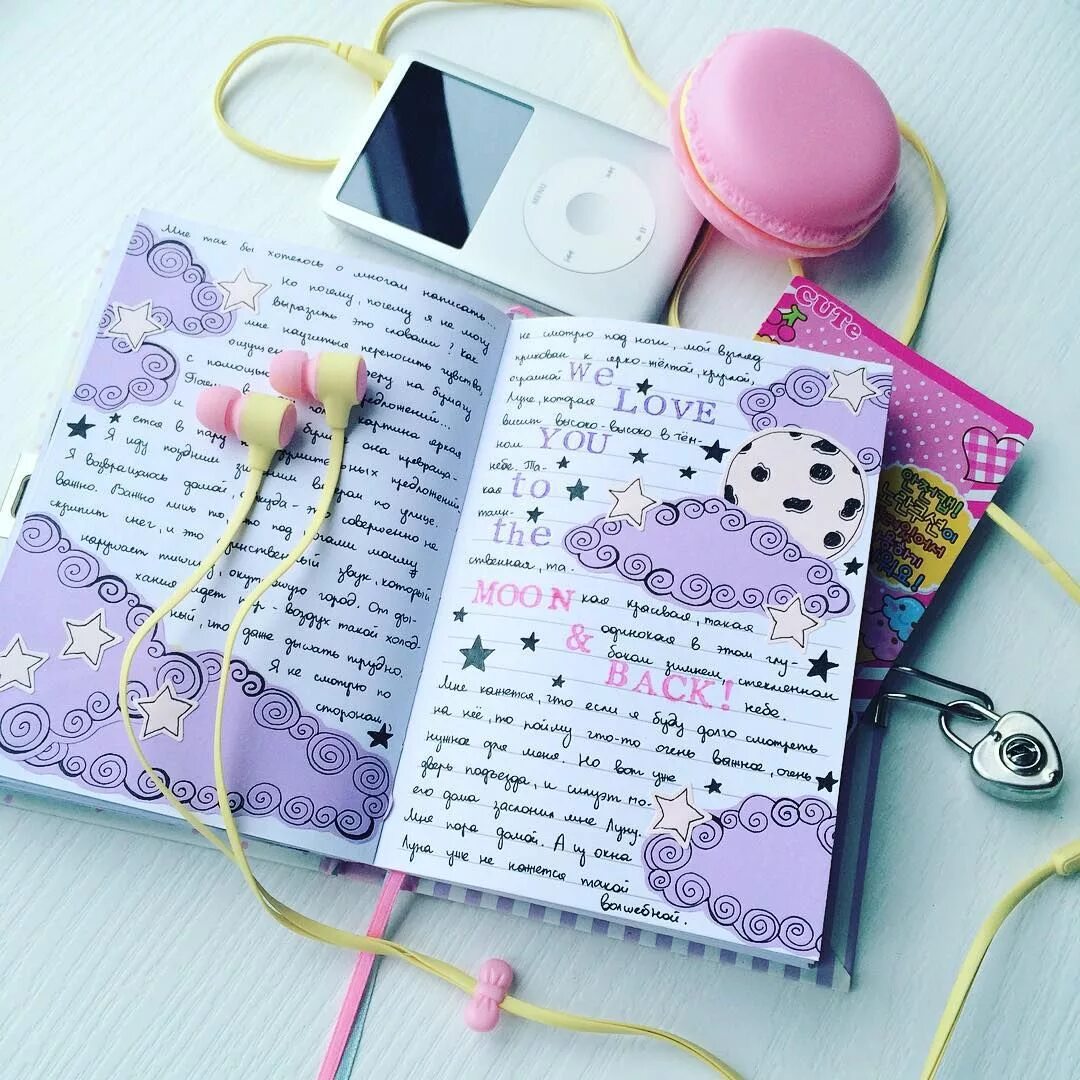 MENU
CUTe
Мне так бы хотелось о многом написать...
Но почему, почему я не могу
выразить это словами? Как
мне научиться переносить чувства,
ощущ
с помощью предложений...
и картина яркая
ется в пару
Я иду поздним зимним вечером по улице.
Я возвращаюсь домой, откуда - это совершенно не
важно. Важно лишь то, что под ногами моими
скрипит снег, и это единственный звук, который
нарушает тишину, окутавшую город. От ды-
хания идет пар - воздух такой холод-
ный, что даже дышать трудно.
Я не смотрю по
сторонам,
не смотрю под ноги, мой взгляд
прикован к ярко-жёлтой, круглой,
огромной
Луне, которая
висит высоко-высоко в тём-
ном
небе. Та-
кая
таин-
ственная, та-
кая красивая, такая
одинокая в этом глу-
боком зимнем, стеклянном
небе.
We
LOVE
YOU
to
the
MOON
&
BACK!
Мне кажется, что если я буду долго смотреть
на неё, то пойму что-то очень важное, очень
нужное для меня. Но вот уже
дверь подъезда, и силуэт мо-
его дома заслонил мне Луну.
Мне пора домой. А из окна
Луна уже не кажется такой
волшебной.